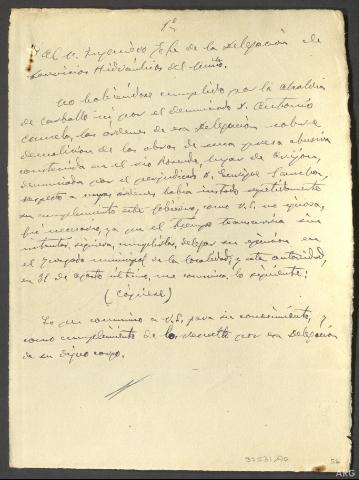 1º
Al Sr. Ingeniero Jefe de la Delegación de
Servicios Hidráulicos del Miño.
No habiéndose cumplido por la Alcaldía
de Carballo ni por el denunciado D. Antonio
las órdenes de esa Delegación sobre
demolición de las obras de una presa abusiva
construida en el río lugar de
denunciada por el perjudicado D. Enrique Sánchez,
respecto a cuyas órdenes había instado repetidamente
su cumplimiento este Gobierno, como V.S. no ignora,
fué necesario, ya que el tiempo transcurría sin
intentar, siquiera, cumplirlas, delegar su ejecución en
el Juzgado municipal de la localidad, y esta autoridad,
en 31 de agosto último, me comunica lo siguiente:
(Cópiese)
Lo que comunico a V.S. para su conocimiento, y
como cumplimiento de lo resuelto por esa Delegación
de su digno cargo.
56
ARG